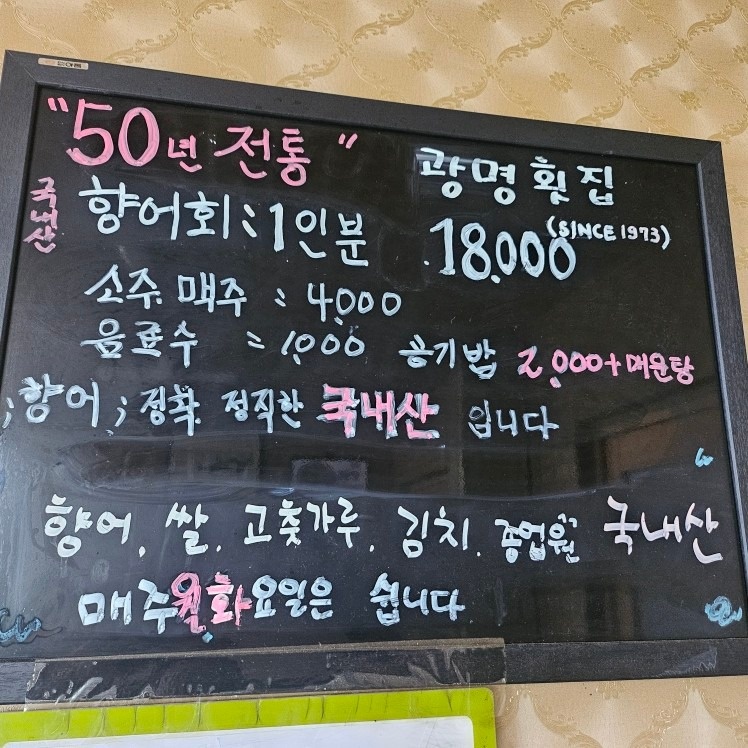 "50년 전통"
광명횟집
(SINCE 1973)
국내산
향어회 : 1인분 18.000
소주 맥주 = 4.000
음료수 = 1.000
공기밥 2.000+매운탕
;향어; 정확 정직한 국내산 입니다
향어. 쌀. 고춧가루. 김치. 종업원 국내산
매주월.화요일은 쉽니다